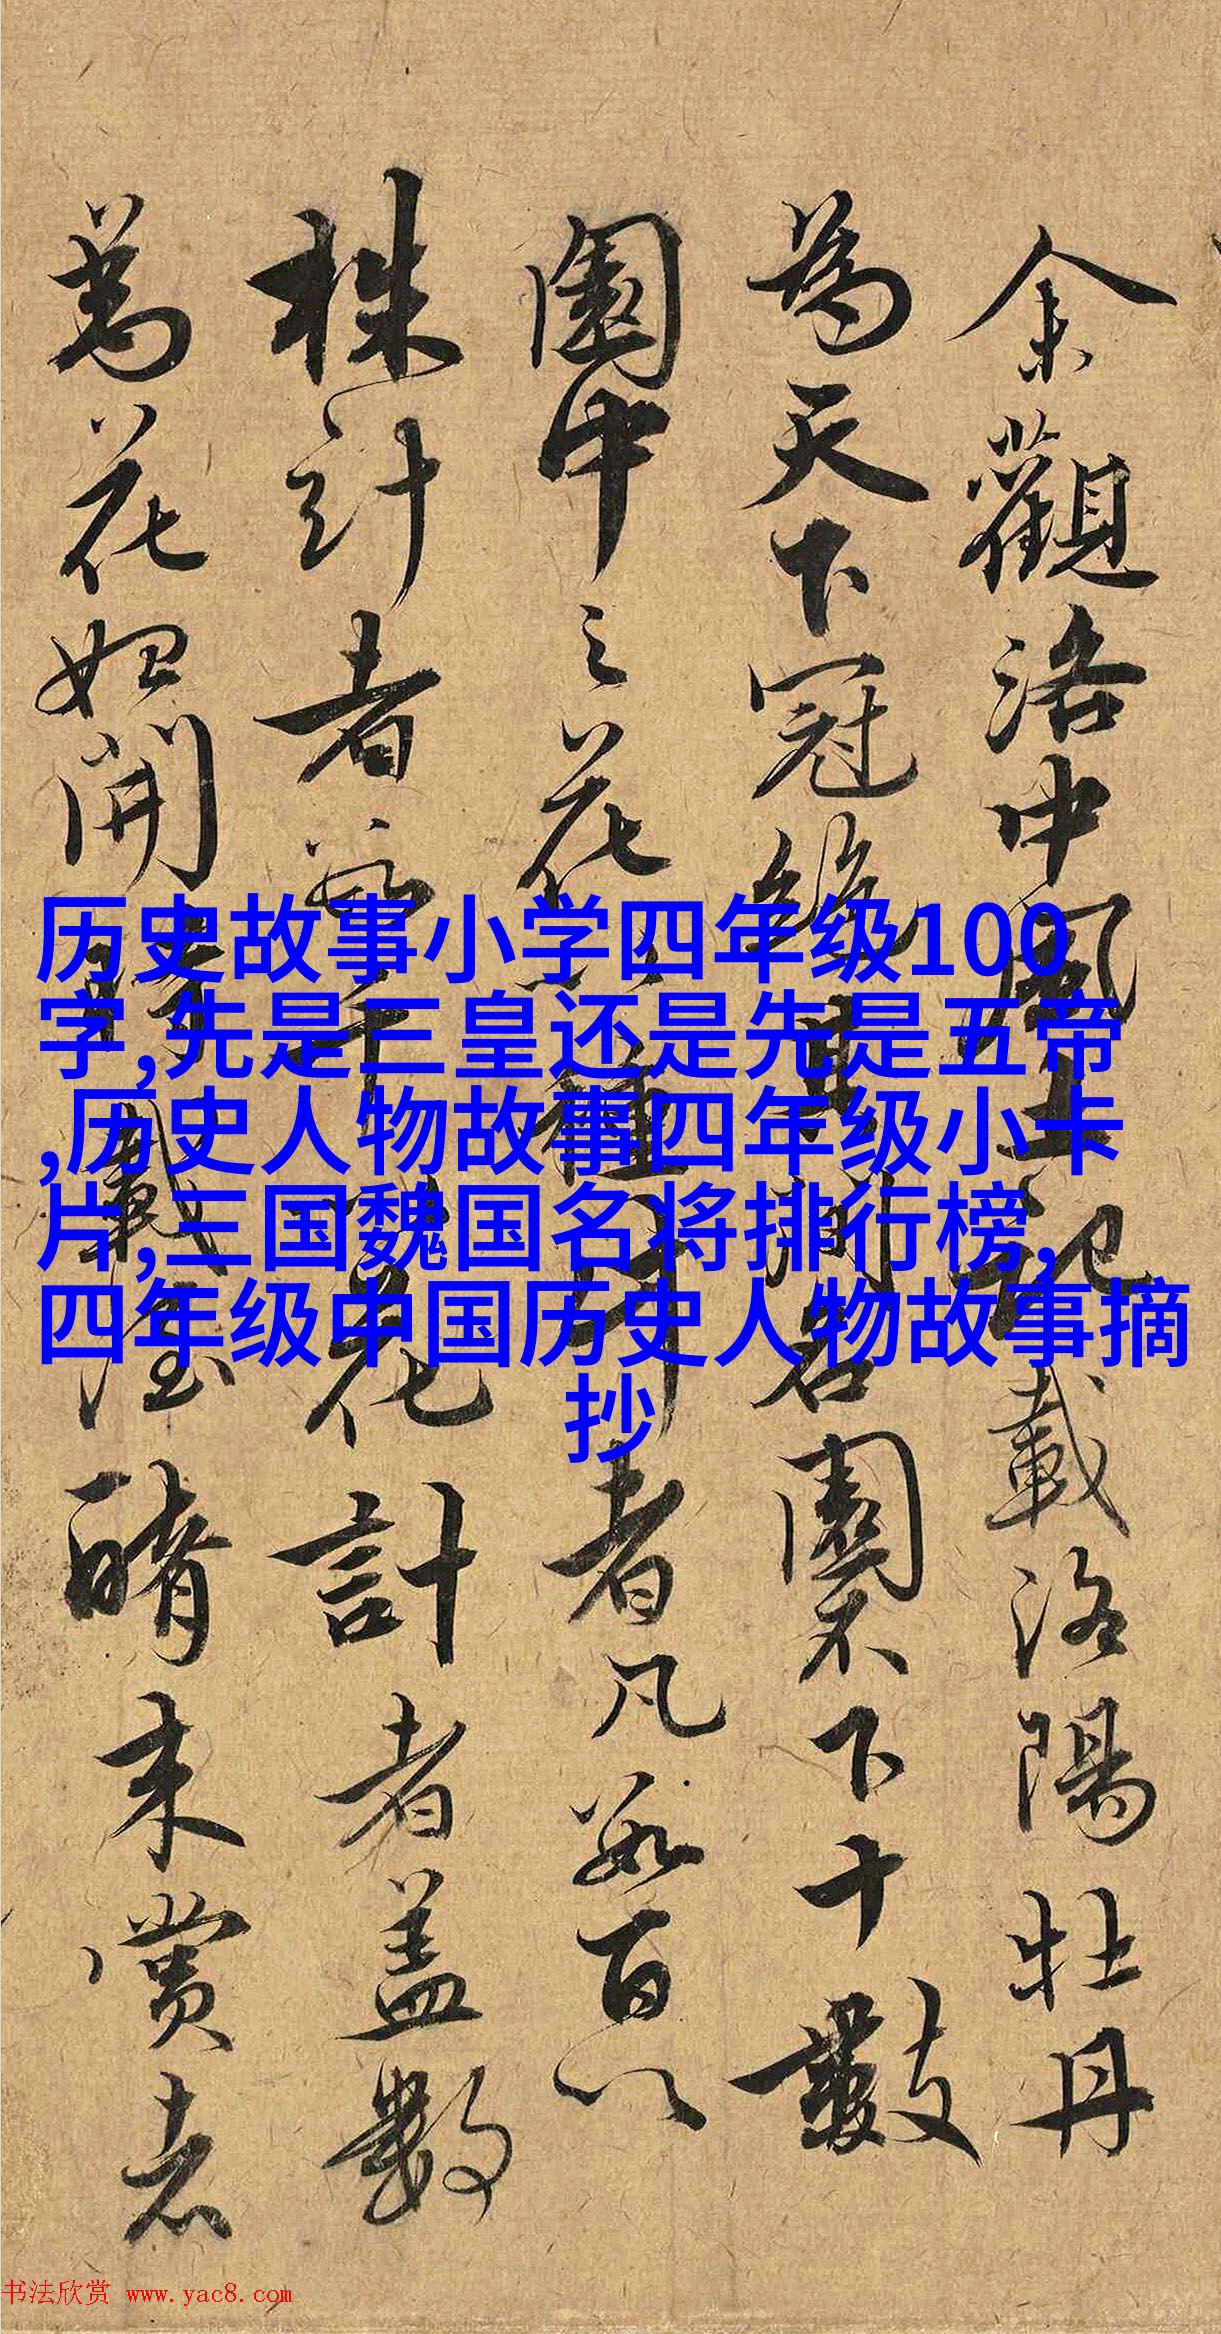 余觀洛中風土記載洛陽牡丹
為天下冠絶世間名園不下十數
園中之花以種計者凡数百以
株計者数千以花計者盖數
萬花開時載来賞者
历史故事小学四年级100
字,先是三皇还是先是五帝
,历史人物故事四年级小卡
片,三国魏国名将排行榜,
四年级中国历史人物故事摘
抄
书法欣赏 www.yac8.com